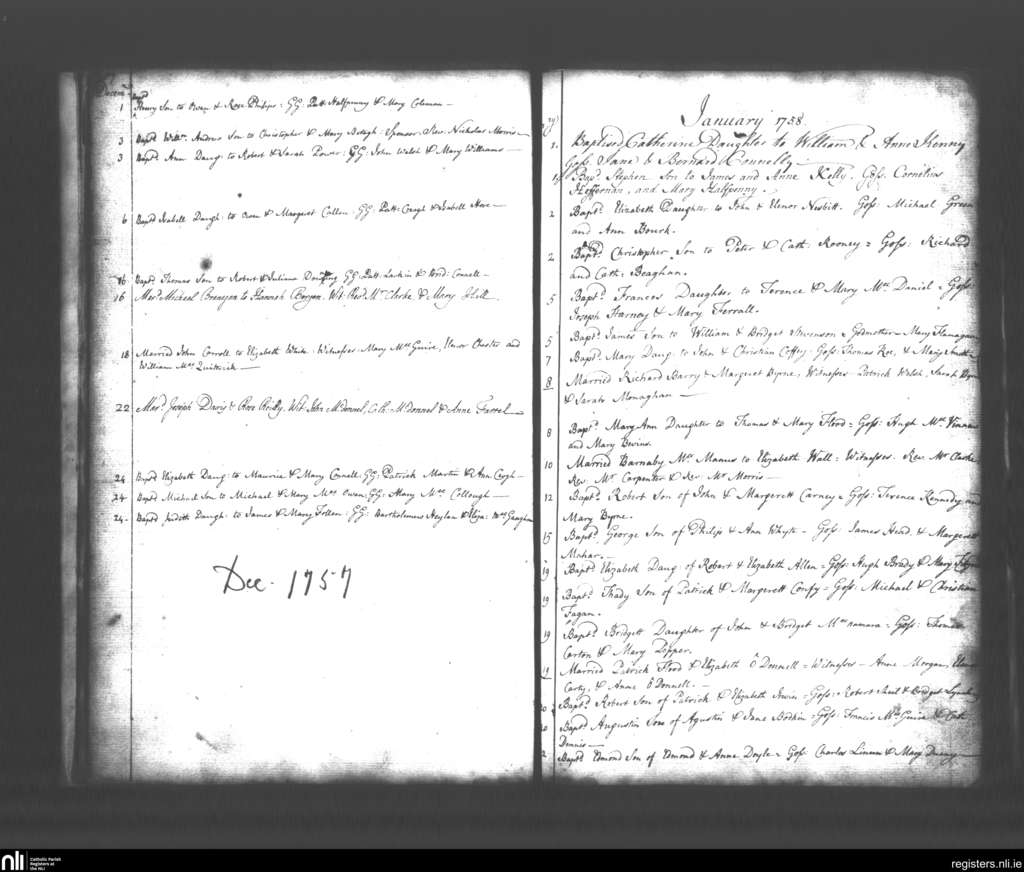 Decem
1 Bapd Henry Son to Owen & Rose Philips: GG: Patt: Halfpenny & Mary Coleman —
3 Baptd Willm. Andrew Son to Christopher & Mary Betagh: Sponsor: Revd. Nicholas Morris —
3 Baptd Ann Daug: to Robert & Sarah Power: GG: John Walsh & Mary Williams —
6 Baptd Isabell Daugh: to Owen & Margaret Cullen: GG: Patt: Creagh & Isabell
16 Baptd Thomas Son to Robert & Juliana GG Patt: Larkin & Brid: Connell —
16 Mard Micheal to Hannah Wit: Revd. Mr Clarke & Mary
18 Married John Corroll to Elizabeth White: Witnesses: Mary Mac Guire, Elenor Chester and
William Mac Quitterick —
22 Mard. Joseph Davis & Rose Reilly. Wit: John McDonnel, McDonnel & Anne Farrel
24 Baptd Elizabeth Daug: to Maurice & Mary Connell: GG: Patrick Martin & Ann
24 Baptd Michael Son to Michael & Mary Mac Owen: GG: Henry Mac Collough —
24 Baptd Judith Daugh: to James & Mary Follon: GG: Bartholomew Heylan & Eliza: Mac Gaughan
Dec. 1757
January 1758
1 Baptised Catherine Daughter to William & Anne Kenny
Goss. Jane & Bernard Connolly
1 Bapt. Stephen Son to James and Anne Kelly. Goss. Cornelius
Heffernan, and Mary Halfpenny.
2 Baptd. Elizabeth Daughter to John & Elenor Nesbitt. Goss: Michael Green
and Ann Bourk.
2 Baptd. Christopher Son to Peter & Cath: Rooney = Goss: Richard
and Cath: Beaghan.
5 Baptd. Frances Daughter to Terence & Mary Mac Daniel = Goss:
Joseph Harney & Mary Ferrall.
5 Baptd. James Son to William & Bridget Stevenson = Godmother = Mary Flanagan
7 Baptd. Mary Daug: to John & Christian Coffey: Goss: Thomas Roe, & Mary Smith
8 Married Richard Barry & Margaret Byrne, Witnesses Patrick Welsh, Sarah Byrne
& Sarah Monaghan —
8 Baptd. Mary Ann Daughter to Thomas & Mary Flood = Goss: Hugh Mac
and Mary Bevins.
10 Married Barnaby Mac Manus to Elizabeth Wall = Witnesses: Rev. Mr Clarke
Rev: Mr Carpenter & Rev: Mr Morris —
12 Baptd. Robert Son of John & Margerett Carney = Goss: Terence Kennedy and
Mary Byrne.
15 Baptd. George Son of Philip & Ann Whyte — Goss: James Head & Margerett
Mahar. —
19 Baptd Elizabeth Daug: of Robert & Elizabeth Allen = Goss: Hugh Brady & Mary
19 Baptd. Thady Son of Patrick & Margerett Confy = Goss: Michael & Christian
Fagan.
19 Baptd. Bridgett Daughter of John & Bridget Mac namara = Goss: Thomas
Carton & Mary Pepper.
19 Married Patrick Flood & Elizabeth O Donnell = Witnesses — Anne Morgan,
Carty, & Anne O Donnell. —
20 Baptd. Robert Son of Patrick & Elizabeth Irwin = Goss: Robert & Bridget Lynch
Baptd Augustin Son of Agustin & Jane Bodkin = Goss: Francis Mac Guire & Cath:
Dennis —
Baptd Edmond Son of Edmond & Anne Doyle = Goss: Charles & Mary
nli
Catholic Parish
Registers at
the NLI
registers.nli.ie